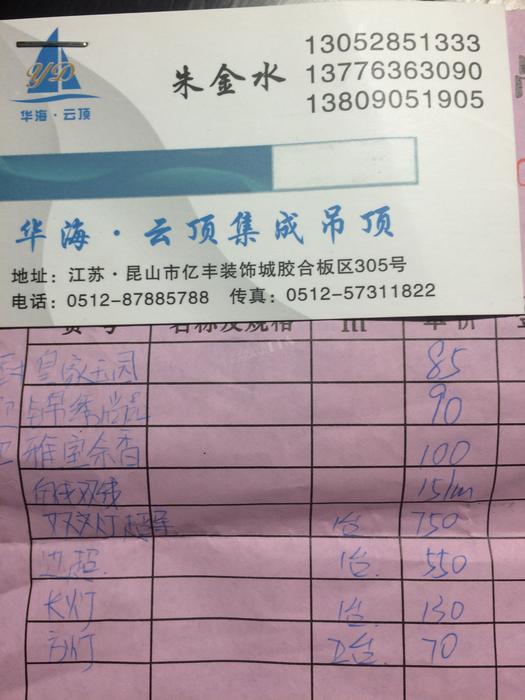 13052851333
朱金水 13776363090
13809051905
YD
华海·云顶
华海·云顶集成吊顶
地址：江苏·昆山市亿丰装饰城胶合板区305号
电话：0512-87885788 传真：0512-57311822
货号 名称及规格 m 单价
皇家 85
锦绣 90
雅室余香 100
双线 15/m
双灯超 1台 750
边超 1台. 550
长灯 1台. 130
方灯 2台. 70